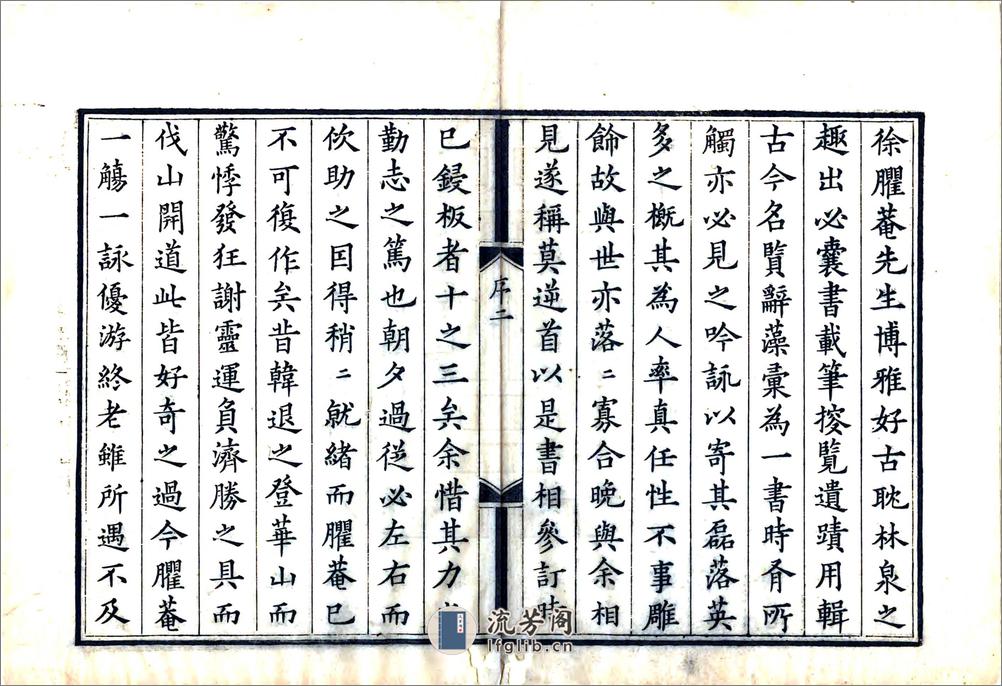 徐臞菴先生博雅好古耽林泉之
趣出必囊書載筆搜覽遺蹟用輯
古今名賢辭藻彙為一書時有所
觸亦必見之吟詠以寄其磊落英
多之概其為人率真任性不事雕
餙故與世亦落〻寡合晚與余相
見遂稱莫逆首以是書相參訂時
序二
已鋟板者十之三矣余惜其力
勤志之篤也朝夕過從必左右而
佽助之因得稍〻就緒而臞菴已
不可復作矣昔韓退之登華山而
驚悸發狂謝靈運負濟勝之具而
伐山開道此皆好奇之過今臞菴
一觴一詠優游終老雖所遇不及
流芳阁
lfglib.cn